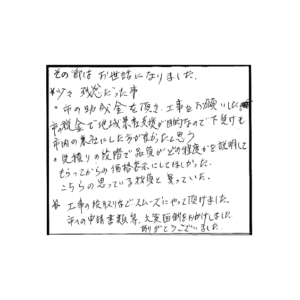 その節はお世話になりました。
*少々残念だった事
・市の助成金を頂き、工事をお願いした
市の税金で地域業者支援が目的なので下負けも
市内の業者にした方が良かったと思う
・見積りの段階で品質がどの程度かを説明して
もらってからの価格表示にしてほしかった。
こちらの思っている材質と異っていた。
* 工事の段取りなどスムーズにやって頂けました。
市への申請書類等、大変面倒をおかけしました
ありがとうございました